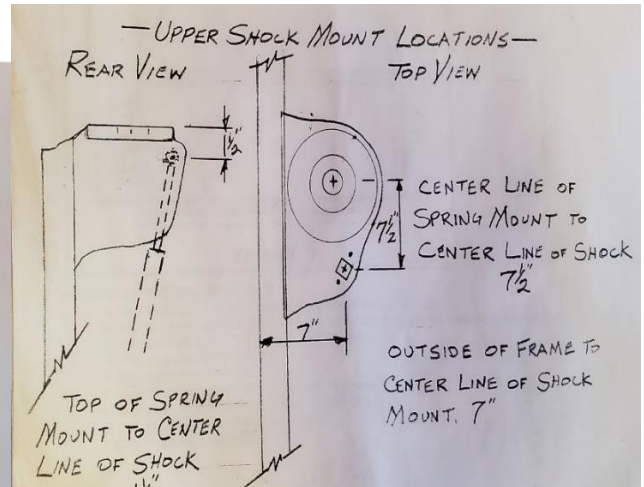 —UPPER SHOCK MOUNT LOCATIONS—
REAR VIEW
TOP VIEW
CENTER LINE OF
SPRING MOUNT TO
CENTER LINE OF SHOCK
7 1/2"
7 1/2"
7"
OUTSIDE OF FRAME TO
CENTER LINE OF SHOCK
MOUNT, 7"
TOP OF SPRING
MOUNT TO CENTER
LINE OF SHOCK